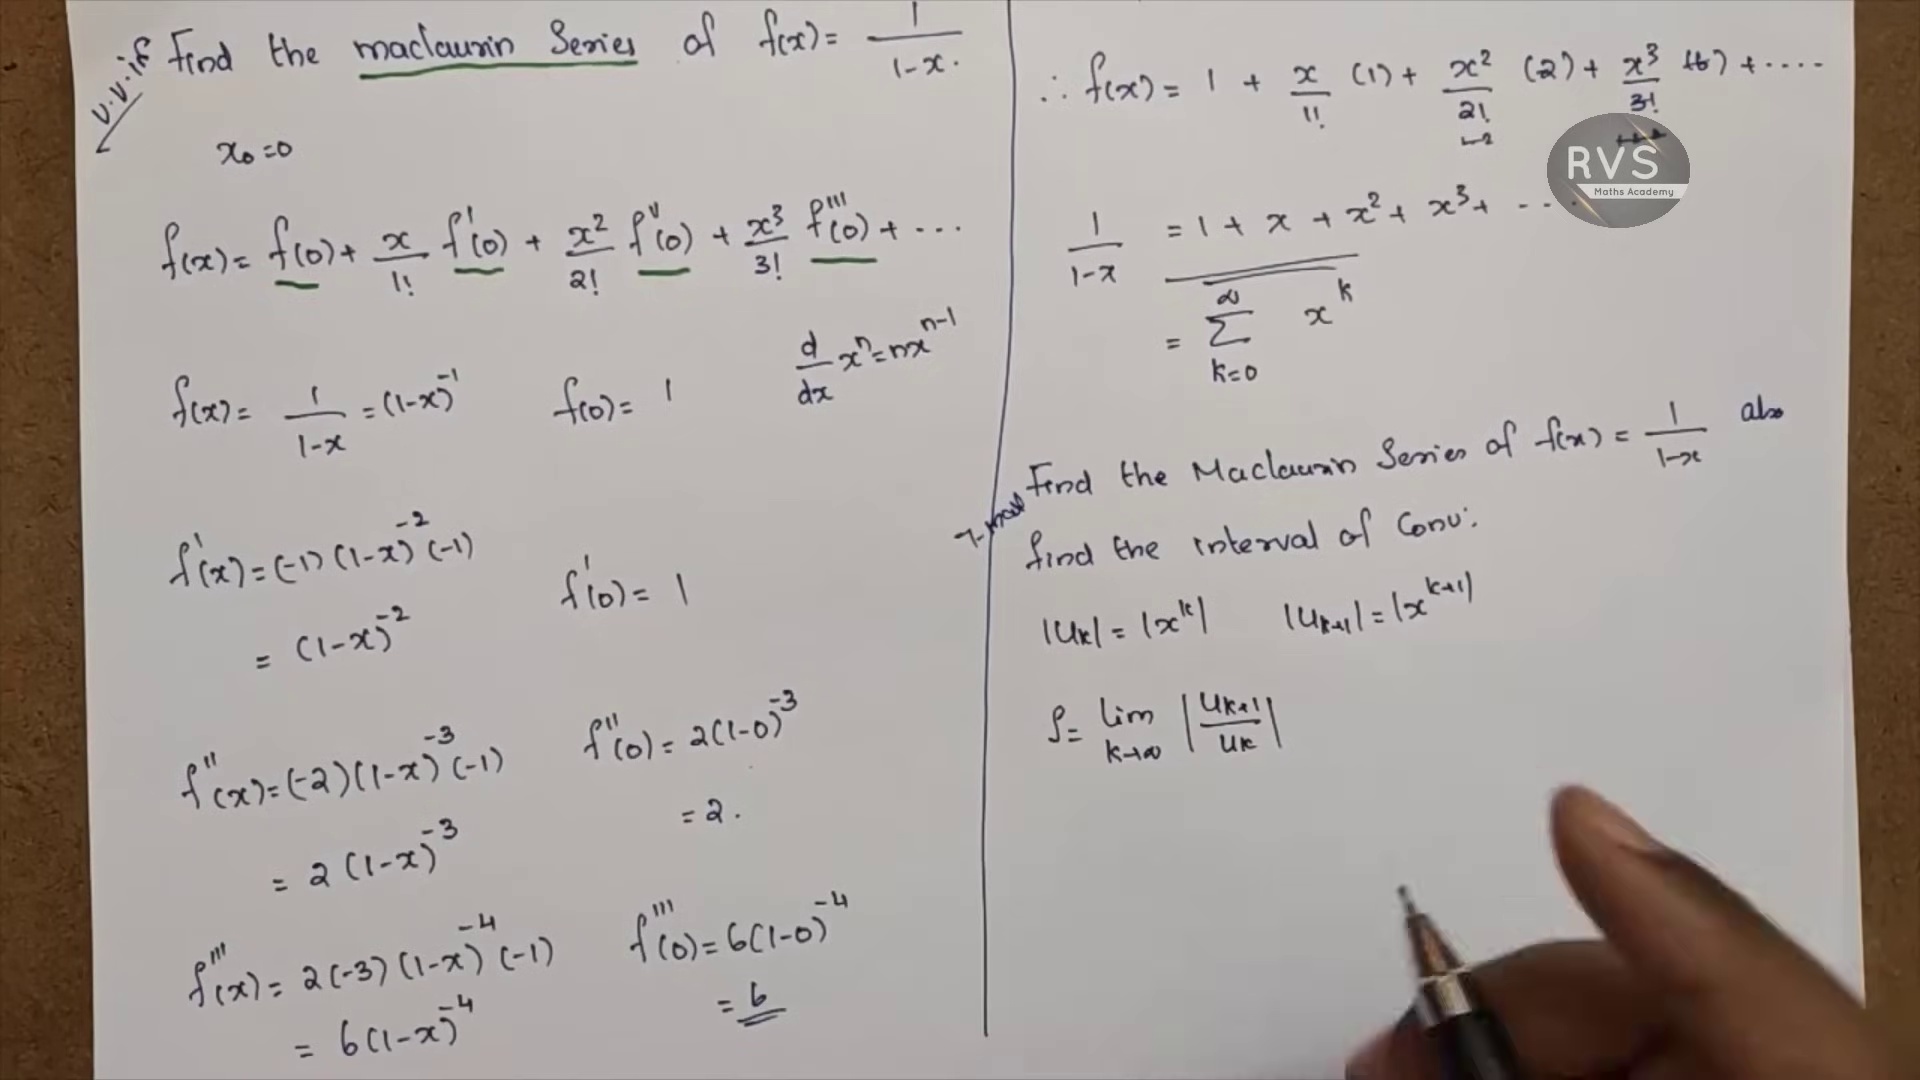 V.V.if Find the maclaurin Series of f(x) = 1/(1-x).
x₀=0
f(x) = f(0) + x/1! f'(0) + x²/2! f''(0) + x³/3! f'''(0) + ...
f(x) = 1/(1-x) = (1-x)⁻¹ f(0) = 1 d/dx xⁿ = nxⁿ⁻¹
f'(x) = (-1)(1-x)⁻²(-1) f'(0) = 1
= (1-x)⁻²
f''(x) = (-2)(1-x)⁻³(-1) f''(0) = 2(1-0)⁻³
= 2(1-x)⁻³ = 2.
f'''(x) = 2(-3)(1-x)⁻⁴(-1) f'''(0) = 6(1-0)⁻⁴
= 6(1-x)⁻⁴ = 6
∴ f(x) = 1 + x/1! (1) + x²/2! (2) + x³/3! (6) + ....
RVS
Maths Academy
1/(1-x) = 1 + x + x² + x³ + ...
= ∞ Σ k=0 xᵏ
Find the Maclaurin Series of f(x) = 1/(1-x) also
find the interval of Conv.
|Uₖ| = |xᵏ| |Uₖ₊₁| = |xᵏ⁺¹|
ρ = lim k→∞ |Uₖ₊₁/Uₖ|